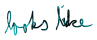 looks like